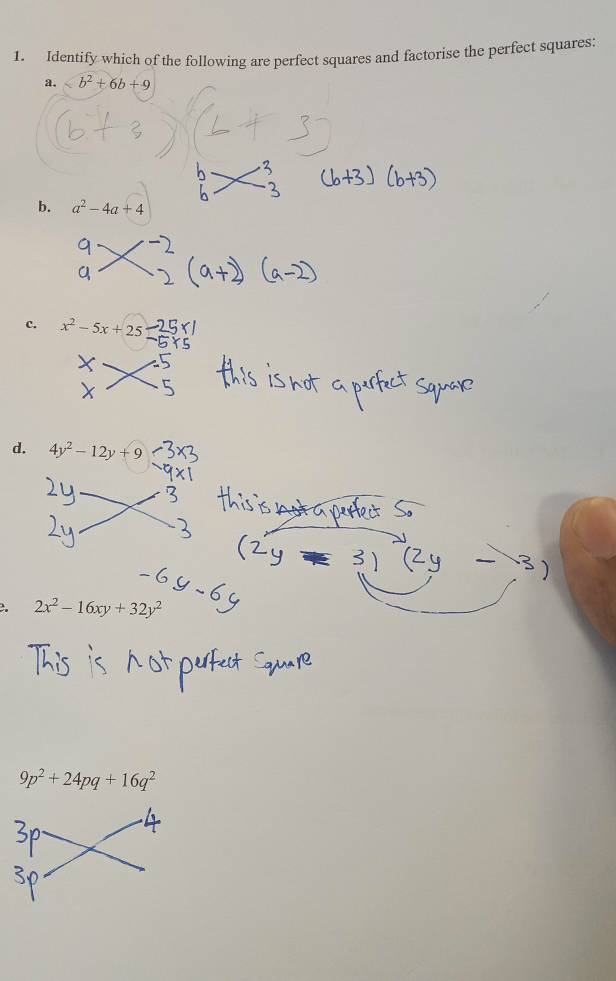 1. Identify which of the following are perfect squares and factorise the perfect squares:
a. b² + 6b + 9
(b + 3) (b + 3)
b 3
b 3
(b+3) (b+3)
b. a² − 4a + 4
a −2
a 2
(a+2) (a−2)
c. x² − 5x + 25 −25×1
−5×5
x -5
x 5
this is not a perfect square
d. 4y² − 12y + 9 −3×3
−9×1
2y 3
2y 3
this is not a perfect So
(2y − 3) (2y − 3)
−6y −6y
e. 2x² − 16xy + 32y²
This is not perfect square
9p² + 24pq + 16q²
3p 4
3p